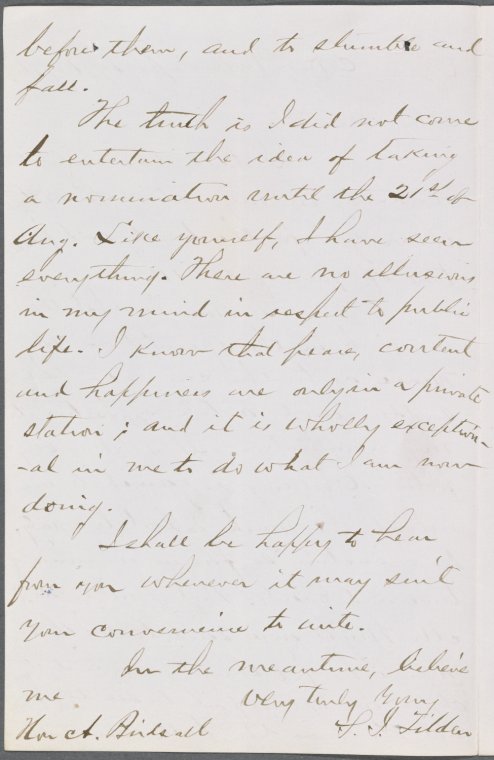 before them, and to stumble and
fall.
The truth is I did not come
to entertain the idea of taking
a nomination until the 21st of
Aug. Like yourself, I have seen
everything. There are no illusions
in my mind in respect to public
life. I know that peace, content
and happiness are only in a private
station; and it is wholly exception-
-al in me to do what I am now
doing.
I shall be happy to hear
from you whenever it may suit
your convenience to write.
In the meantime, believe
me very truly Yours
Hon A. Birdsall S. J. Tilden